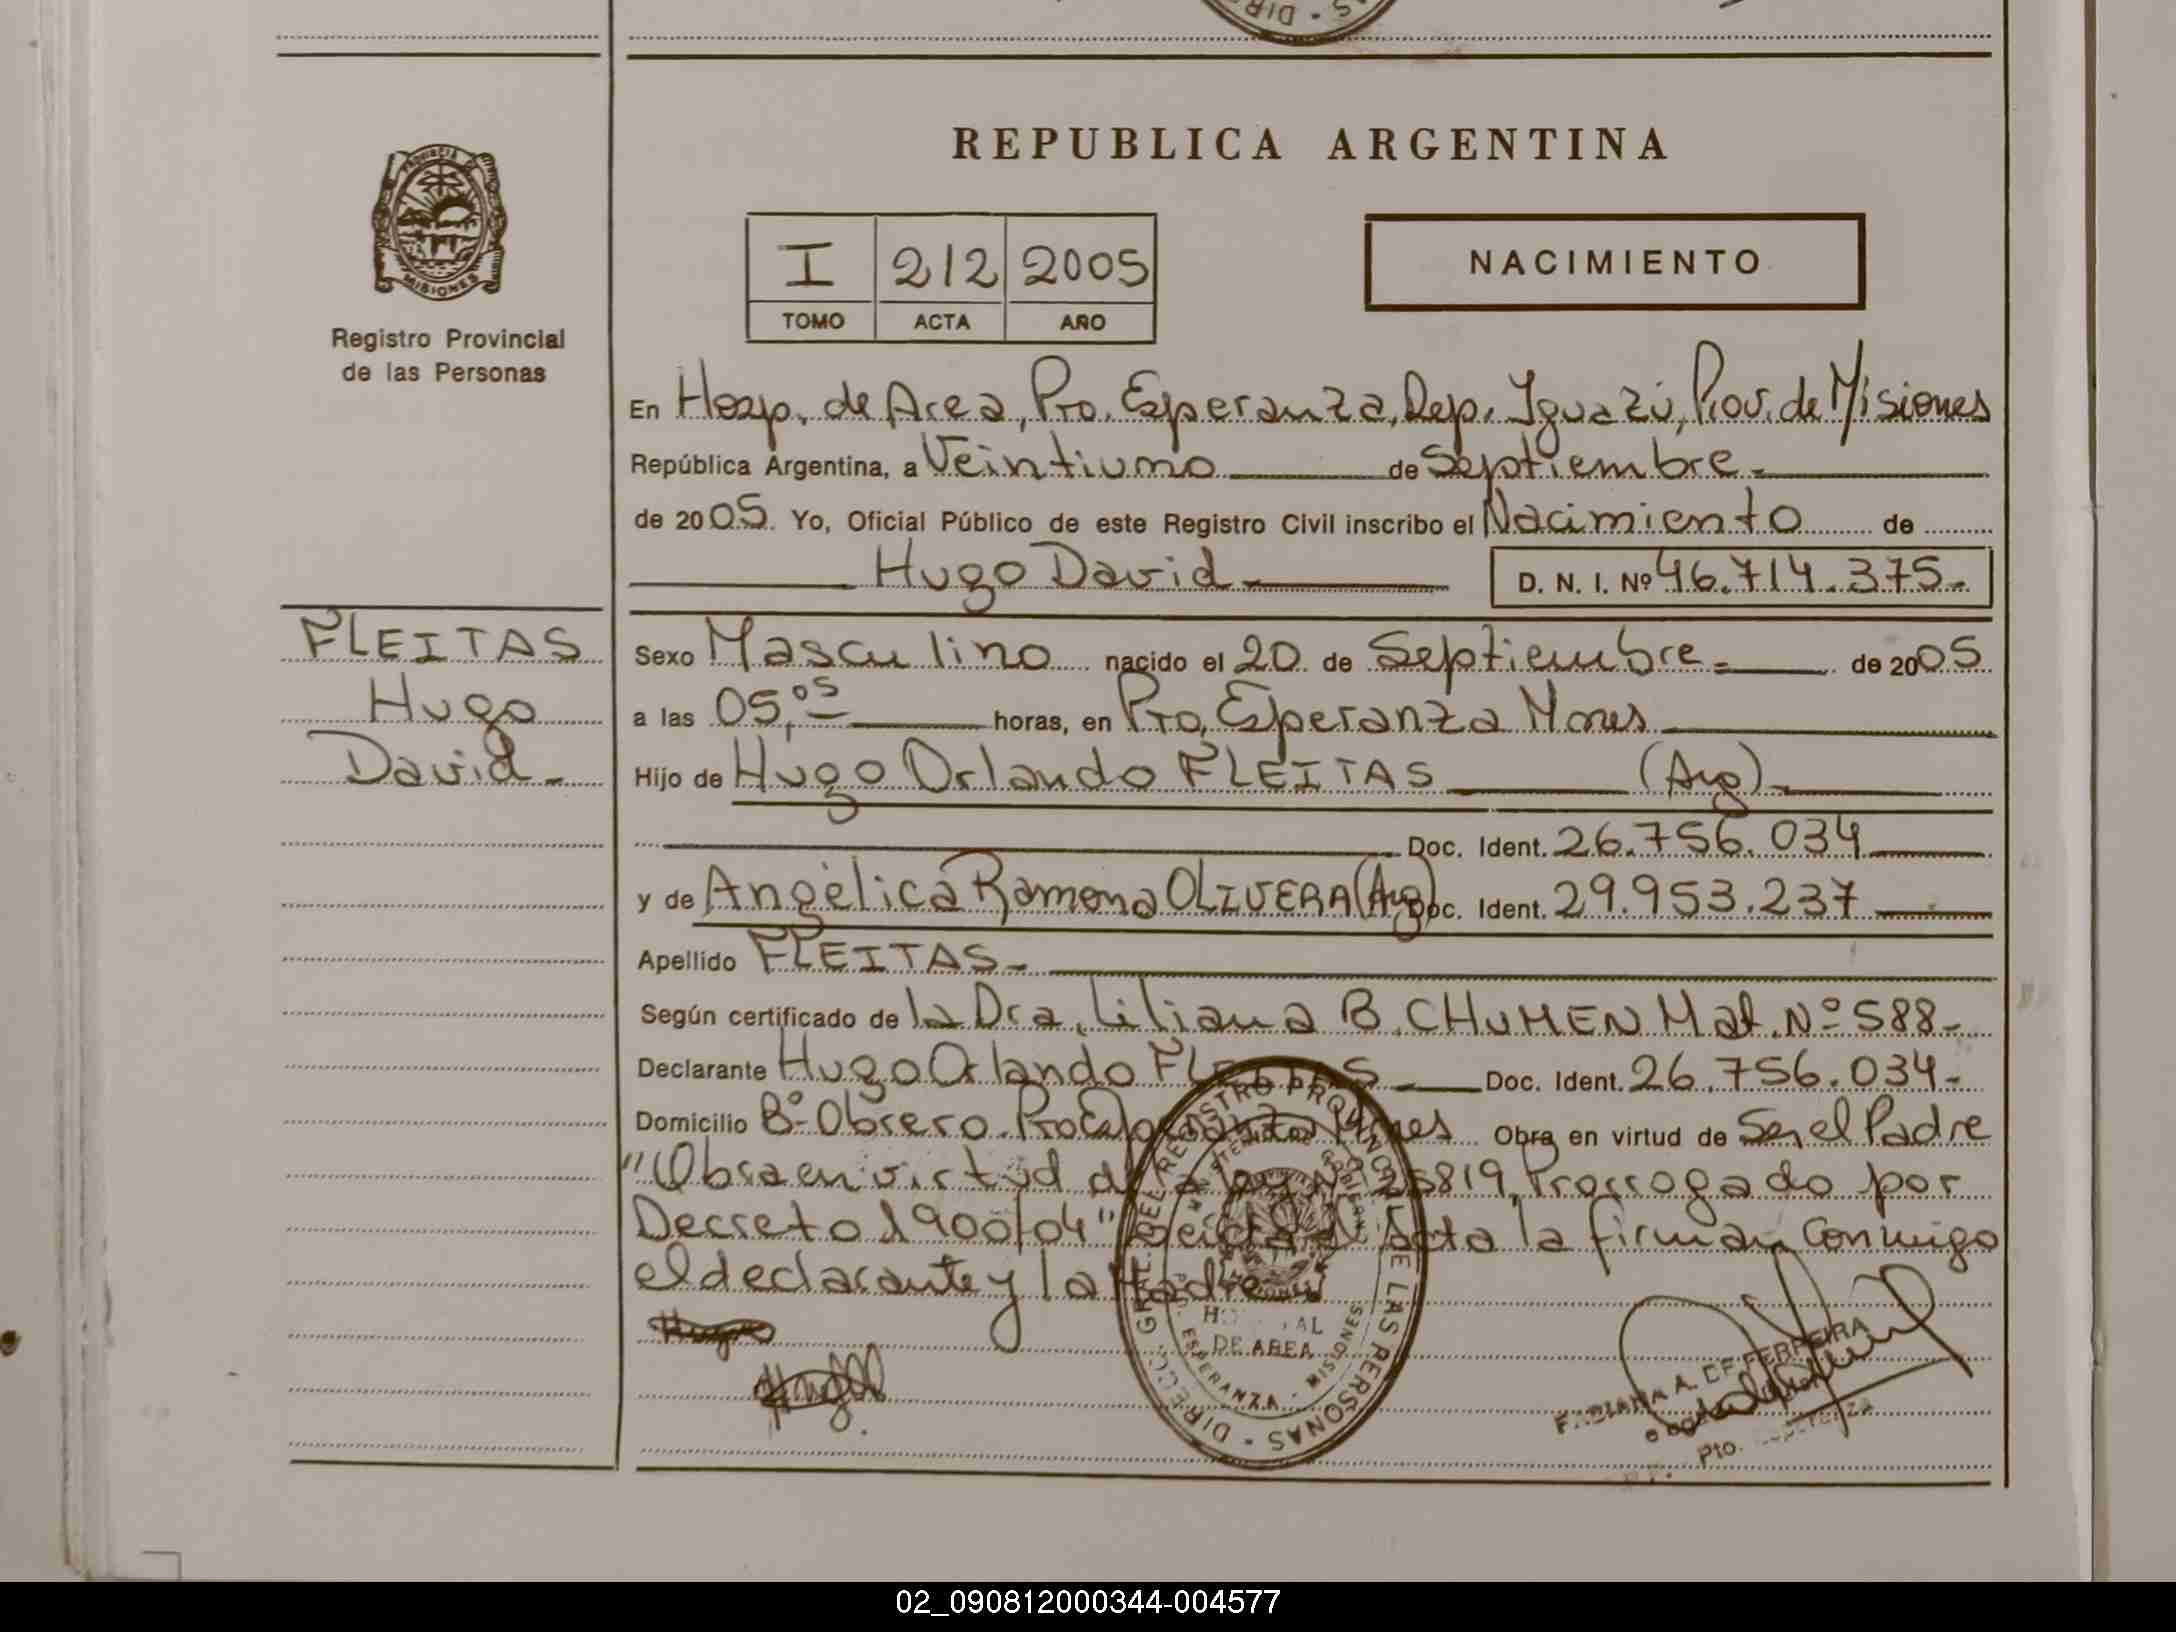 REPUBLICA ARGENTINA
PROVINCIA DE MISIONES
Registro Provincial
de las Personas
I 212 2005
TOMO ACTA AÑO
NACIMIENTO
En Hosp. de Area, Pto. Esperanza, Dep. Iguazú, Prov. de Misiones
República Argentina, a Veintiuno de Septiembre.
de 2005. Yo, Oficial Público de este Registro Civil inscribo el Nacimiento de
Hugo David D. N. I. Nº 46.714.375.-
FLEITAS
Hugo
David.-
Sexo Masculino nacido el 20 de Septiembre.- de 2005
a las 05,05 horas, en Pto. Esperanza Mnes
Hijo de Hugo Orlando FLEITAS (Arg).
Doc. Ident. 26.756.034
y de Angélica Ramona OLIVERA (Arg) Doc. Ident. 29.953.237
Apellido FLEITAS.-
Según certificado de la Dra. Liliana B. CHUMEN Mat. Nº 588-
Declarante Hugo Orlando FLEITAS Doc. Ident. 26.756.034-
Domicilio Bº Obrero. Pto Esperanza Mnes Obra en virtud de Ser el Padre
"Obra en virtud de la Ley Nº 25819, Prorrogado por
Decreto 1900/04" Leída el Acta la firman conmigo
el declarante y la Madre
DIRECC. GRAL. DEL REGISTRO PROVINCIAL DE LAS PERSONAS
MINISTERIO DE GOBIERNO
DE AREA
ESPERANZA - MISIONES
FABIANA A. DE FERREIRA
Pto.
02_090812000344-004577